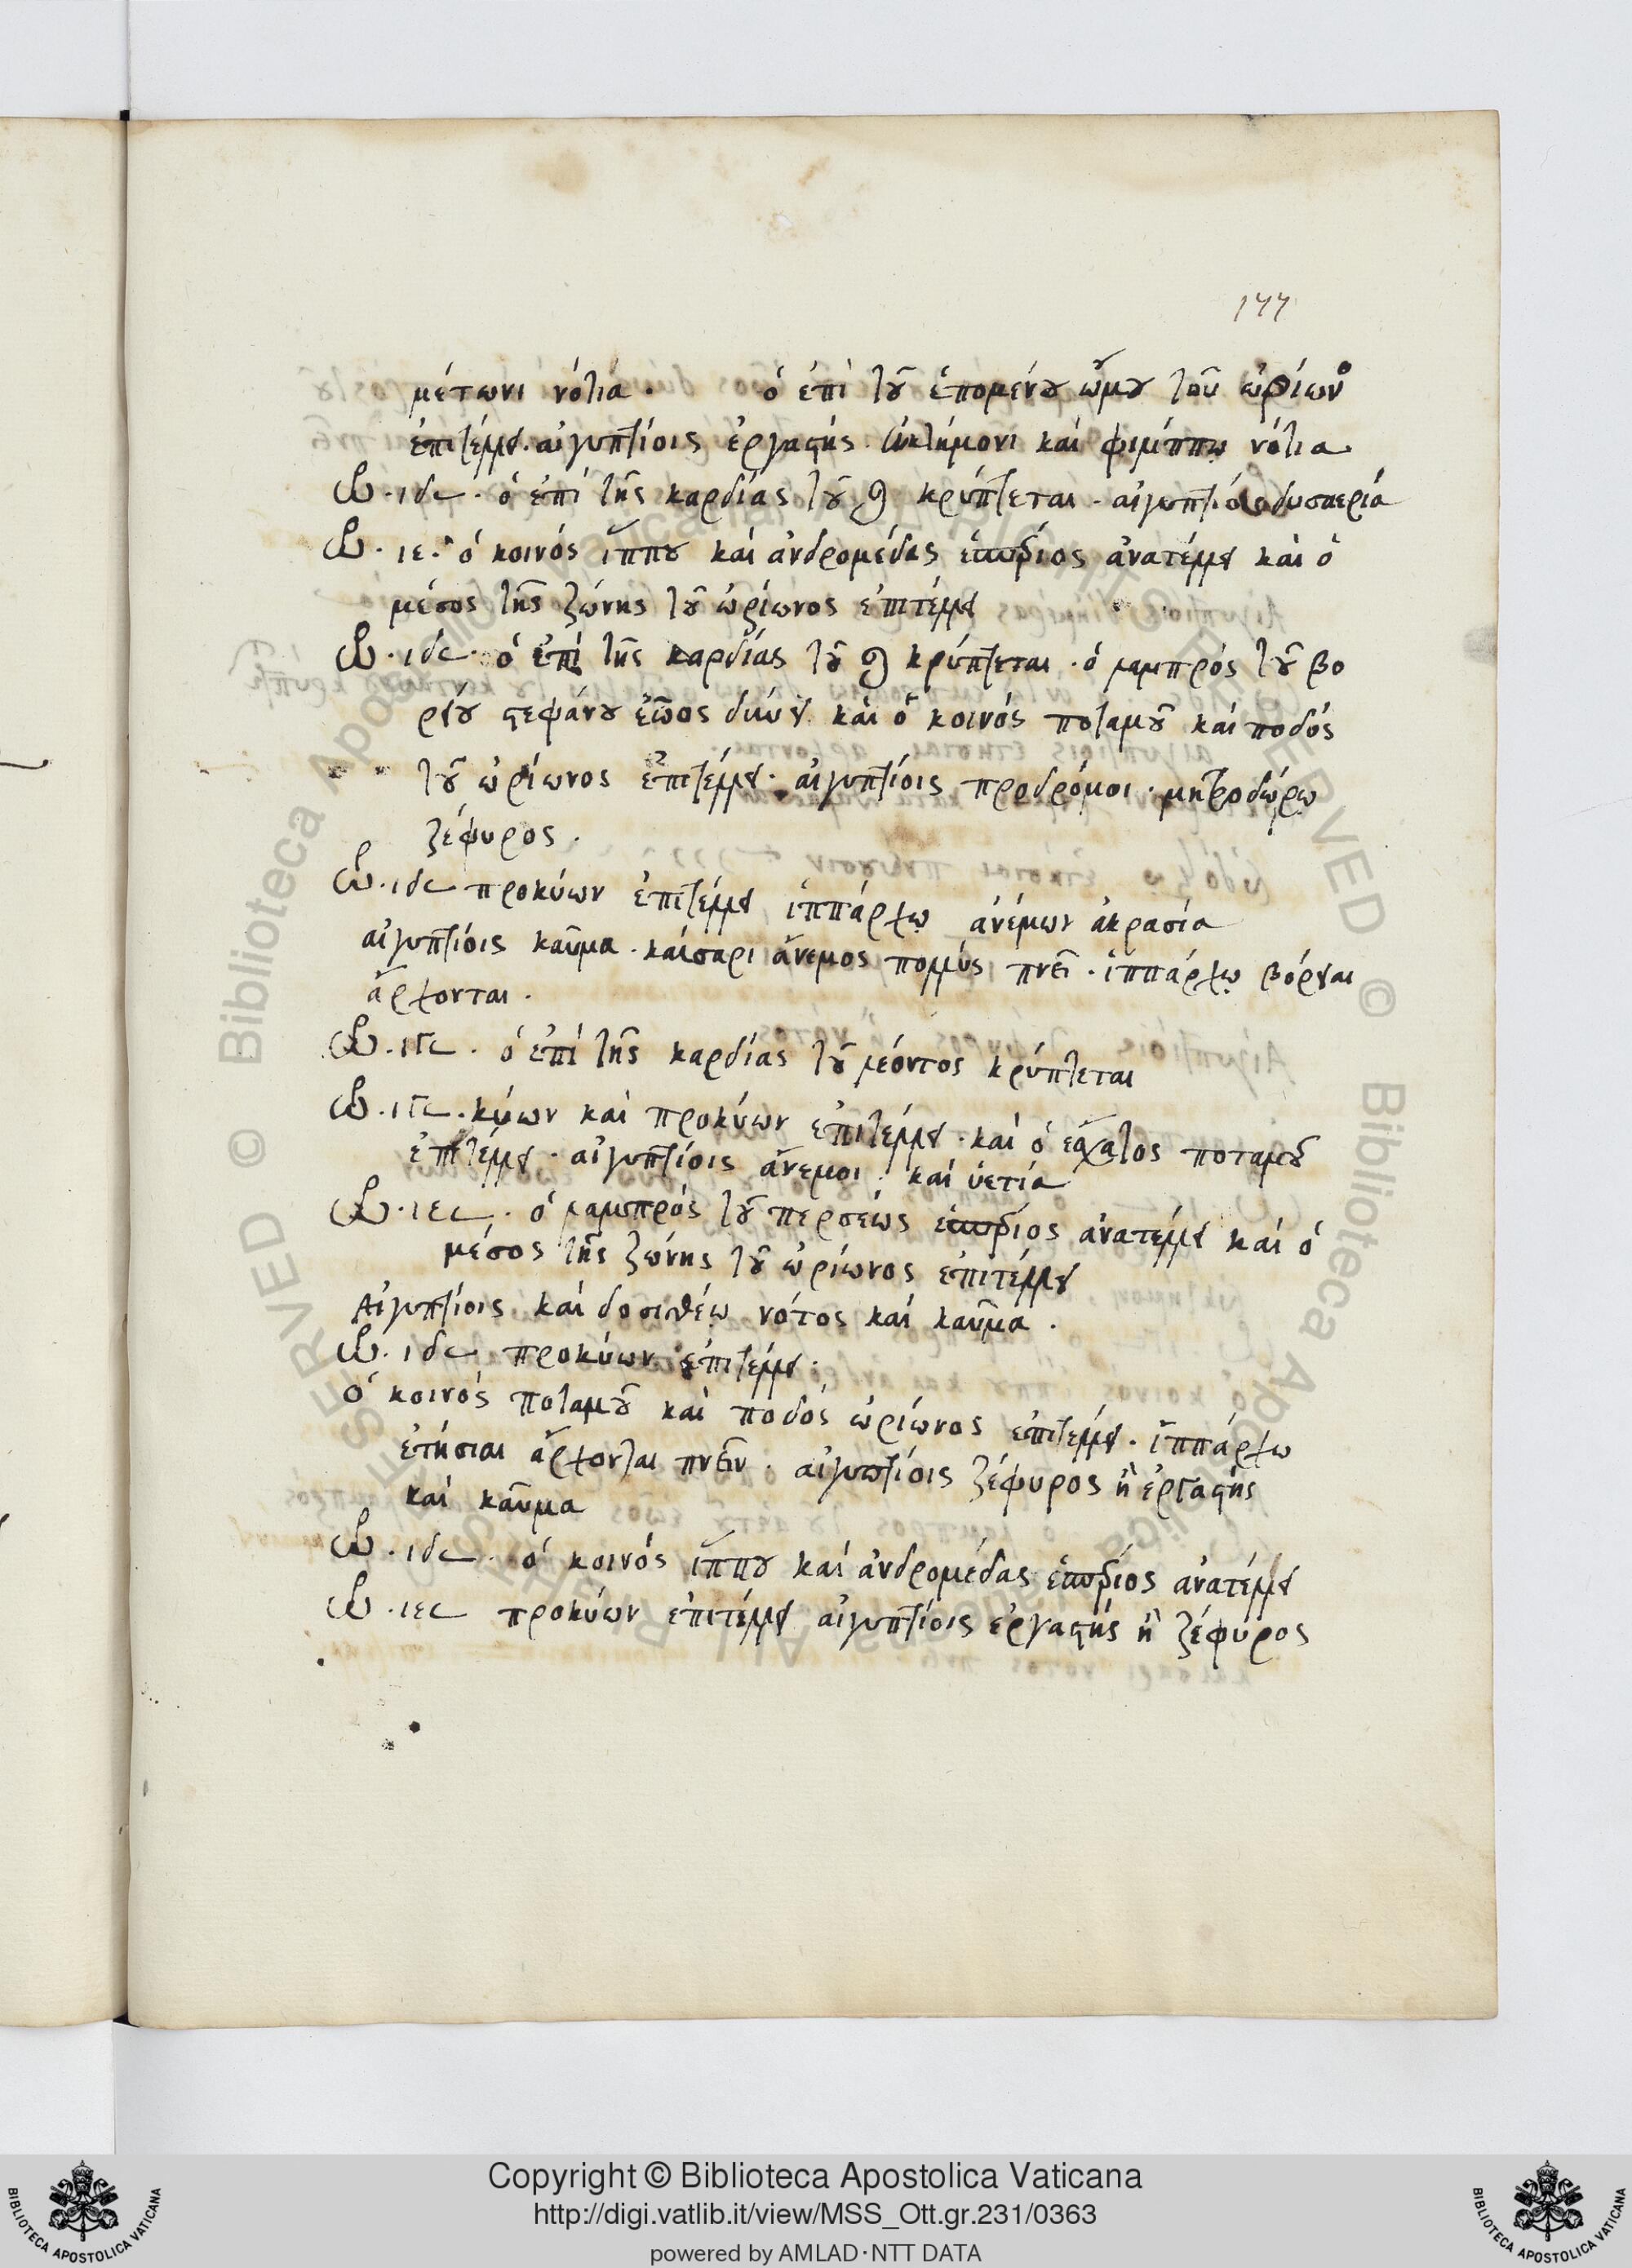 177
μέτωνι νότια . ὁ ἐπὶ τοῦ ἑπομένου ὤμου τοῦ ὠρίωνο
ἐπιτέλλει . αἰγυπτίοις ἐργαστής . καὶ φιλίππῳ νότια
ὡρ . ιδ 𐅵 . ὁ ἐπὶ τῆς καρδίας τοῦ ♌ κρύπτεται . αἰγυπτίοις δυσαερία
ὡρ . ιε . ὁ κοινός ἵππου καὶ ἀνδρομέδας ἑσπέριος ἀνατέλλει καὶ ὁ
μέσος τῆς ζώνης τοῦ ὠρίωνος ἐπιτέλλει
ὡρ . ιδ 𐅵 . ὁ ἐπὶ τῆς καρδίας τοῦ ♌ κρύπτεται . ὁ λαμπρός τοῦ βο
ρείου στεφάνου ἑῷος δύνει καὶ ὁ κοινός ποταμοῦ καὶ ποδός
τοῦ ὠρίωνος ἐπιτέλλει . αἰγυπτίοις προδρόμοι . μητροδώρω
ζέφυρος .
ὡρ . ιδ 𐅵 προκύων ἐπιτέλλει ἱππάρχῳ ἀνέμων ἀκρασία
αἰγυπτίοις καῦμα . καίσαρι ἄνεμος πολλύς πνεῖ . ἱππάρχῳ βόρειαι
ἄρχονται .
ὡρ . ιγ 𐅵 . ὁ ἐπὶ τῆς καρδίας τοῦ λέοντος κρύπτεται
ὡρ . ιγ 𐅵 . κύων καὶ προκύων ἐπιτέλλει . καὶ ὁ ἔσχατος ποταμοῦ
ἐπιτέλλει . αἰγυπτίοις ἄνεμοι . καὶ ὑετία
ὡρ . ιε 𐅵 . ὁ λαμπρός τοῦ περσέως ἑσπέριος ἀνατέλλει καὶ ὁ
μέσος τῆς ζώνης τοῦ ὠρίωνος ἐπιτέλλει
Αἰγυπτίοις καὶ δοσιθέῳ νότος καὶ καῦμα .
ὡρ . ιδ 𐅵 προκύων ἐπιτέλλει .
ὁ κοινός ποταμοῦ καὶ ποδός ὠρίωνος ἐπιτέλλει . ἱππάρχω
ἐτήσιαι ἄρχονται πνεῖν . αἰγυπτίοις ζέφυρος ἢ ἐργαστής
καὶ καῦμα
ὡρ . ιδ 𐅵 . ὁ κοινός ἵππου καὶ ἀνδρομέδας ἑσπέριος ἀνατέλλει
ὡρ . ιε 𐅵 προκύων ἐπιτέλλει αἰγυπτίοις ἐργαστής ἢ ζέφυρος
Copyright © Biblioteca Apostolica Vaticana
http://digi.vatlib.it/view/MSS_Ott.gr.231/0363
powered by AMLAD·NTT DATA